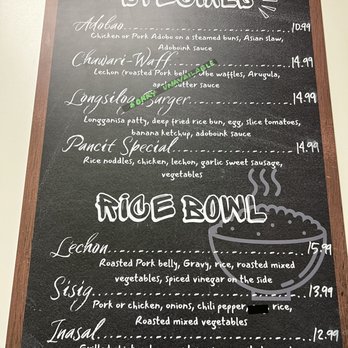 SPECIALS
Adobao 10.99
Chicken or Pork Adobo on a steamed buns, Asian slaw,
Adoboink sauce
Chawari-Waff 14.99
Lechon (roasted Pork belly waffles, Arugula,
sauce
SORRY UNAVAILABLE
Longsilog Burger 14.99
Longganisa patty, deep fried rice bun, egg, slice tomatoes,
banana ketchup, adoboink sauce
Pancit Special 14.99
Rice noddles, chicken, lechon, garlic sweet sausage,
vegetables
RICE BOWL
Lechon 15.99
Roasted Pork belly, Gravy, rice, roasted mixed
vegetables, spiced vinegar on the side
Sisig 13.99
Pork or chicken, onions, chili pepper, rice,
Roasted mixed vegetables
Inasal 12.99